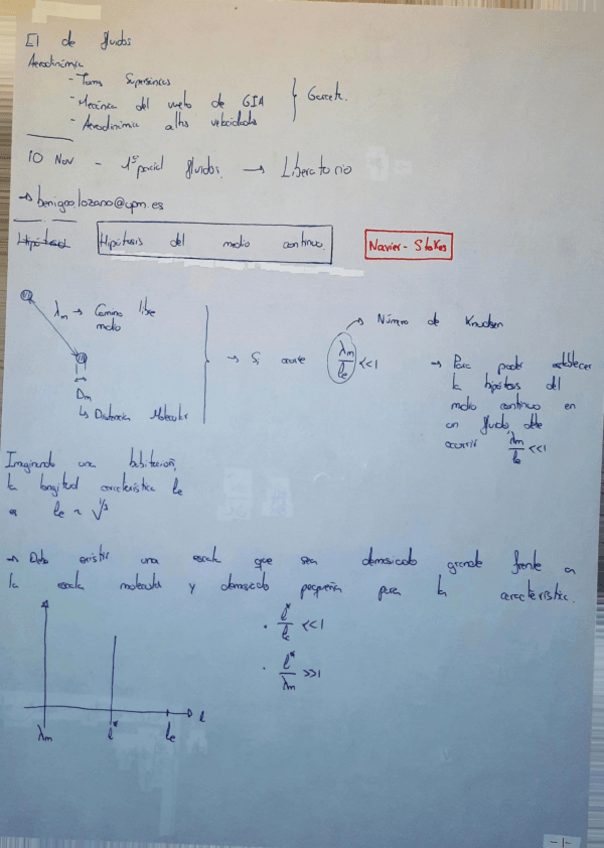 EI de fluidos
Aerodinámica
- Toms Supersónicas
- Mecánica del vuelo de GIA
- Aerodinámica altas velocidades
10 Nov - 1er parcial fluidos. → Liberatorio
→ benigno.lozano@upm.es
Hipótesis
Hipótesis del medio continuo.
Navier-Stokes
λm → Camino libre
medio
Dm
↳ Distancia Molecular
→ Si ocurre λm/lc <<1
→ Número de Knudsen
→ Para poder establecer
la hipótesis del
medio continuo en
un fluido, debe
ocurrir λm/lc <<1
Imaginando una habitación,
la longitud característica lc
es lc ~ V^1/3
→ Debe existir una escala que sea demasiado grande frente a
la escala molecular y demasiado pequeña para la característica.
· l*/lc <<1
· l*/λm >>1
λm l* lc l
-1-